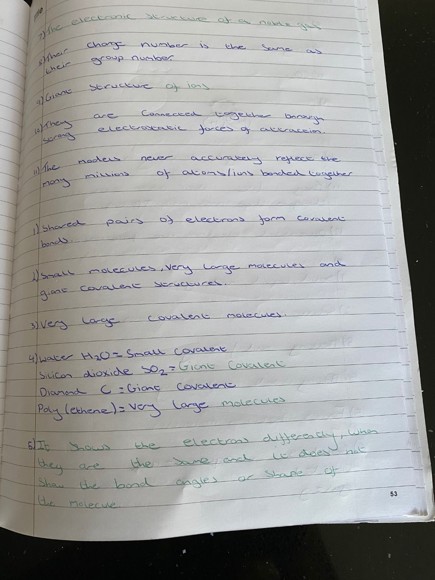 7) The electronic structure of a noble gas
8) Their charge number is the same as
their group number
9) Giant structure of ions
10) They are connected together through
strong electrostatic forces of attraction.
11) The models never accurately reflect the
many millions of atoms/ions bonded together
1) Shared pairs of electrons form covalent
bonds.
2) Small molecules, very large molecules and
giant covalent structures.
3) Very large covalent molecules.
4) Water H2O = Small covalent
Silicon dioxide SO2 = Giant covalent
Diamond C = Giant covalent
Poly(ethene) = Very large molecules
5) It shows the electrons differently, when
they are the same and it does not
show the bond angles or shape of
the molecule
53